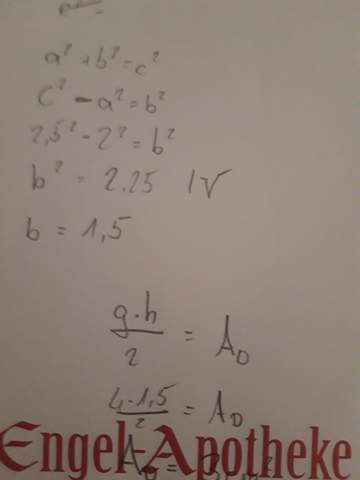 a² + b² = c²
c² - a² = b²
2,5² - 2² = b²
b² = 2.25 | √
b = 1,5
g·h / 2 = A_D
4·1,5 / 2 = A_D
Engel-Apotheke
A_D = 3